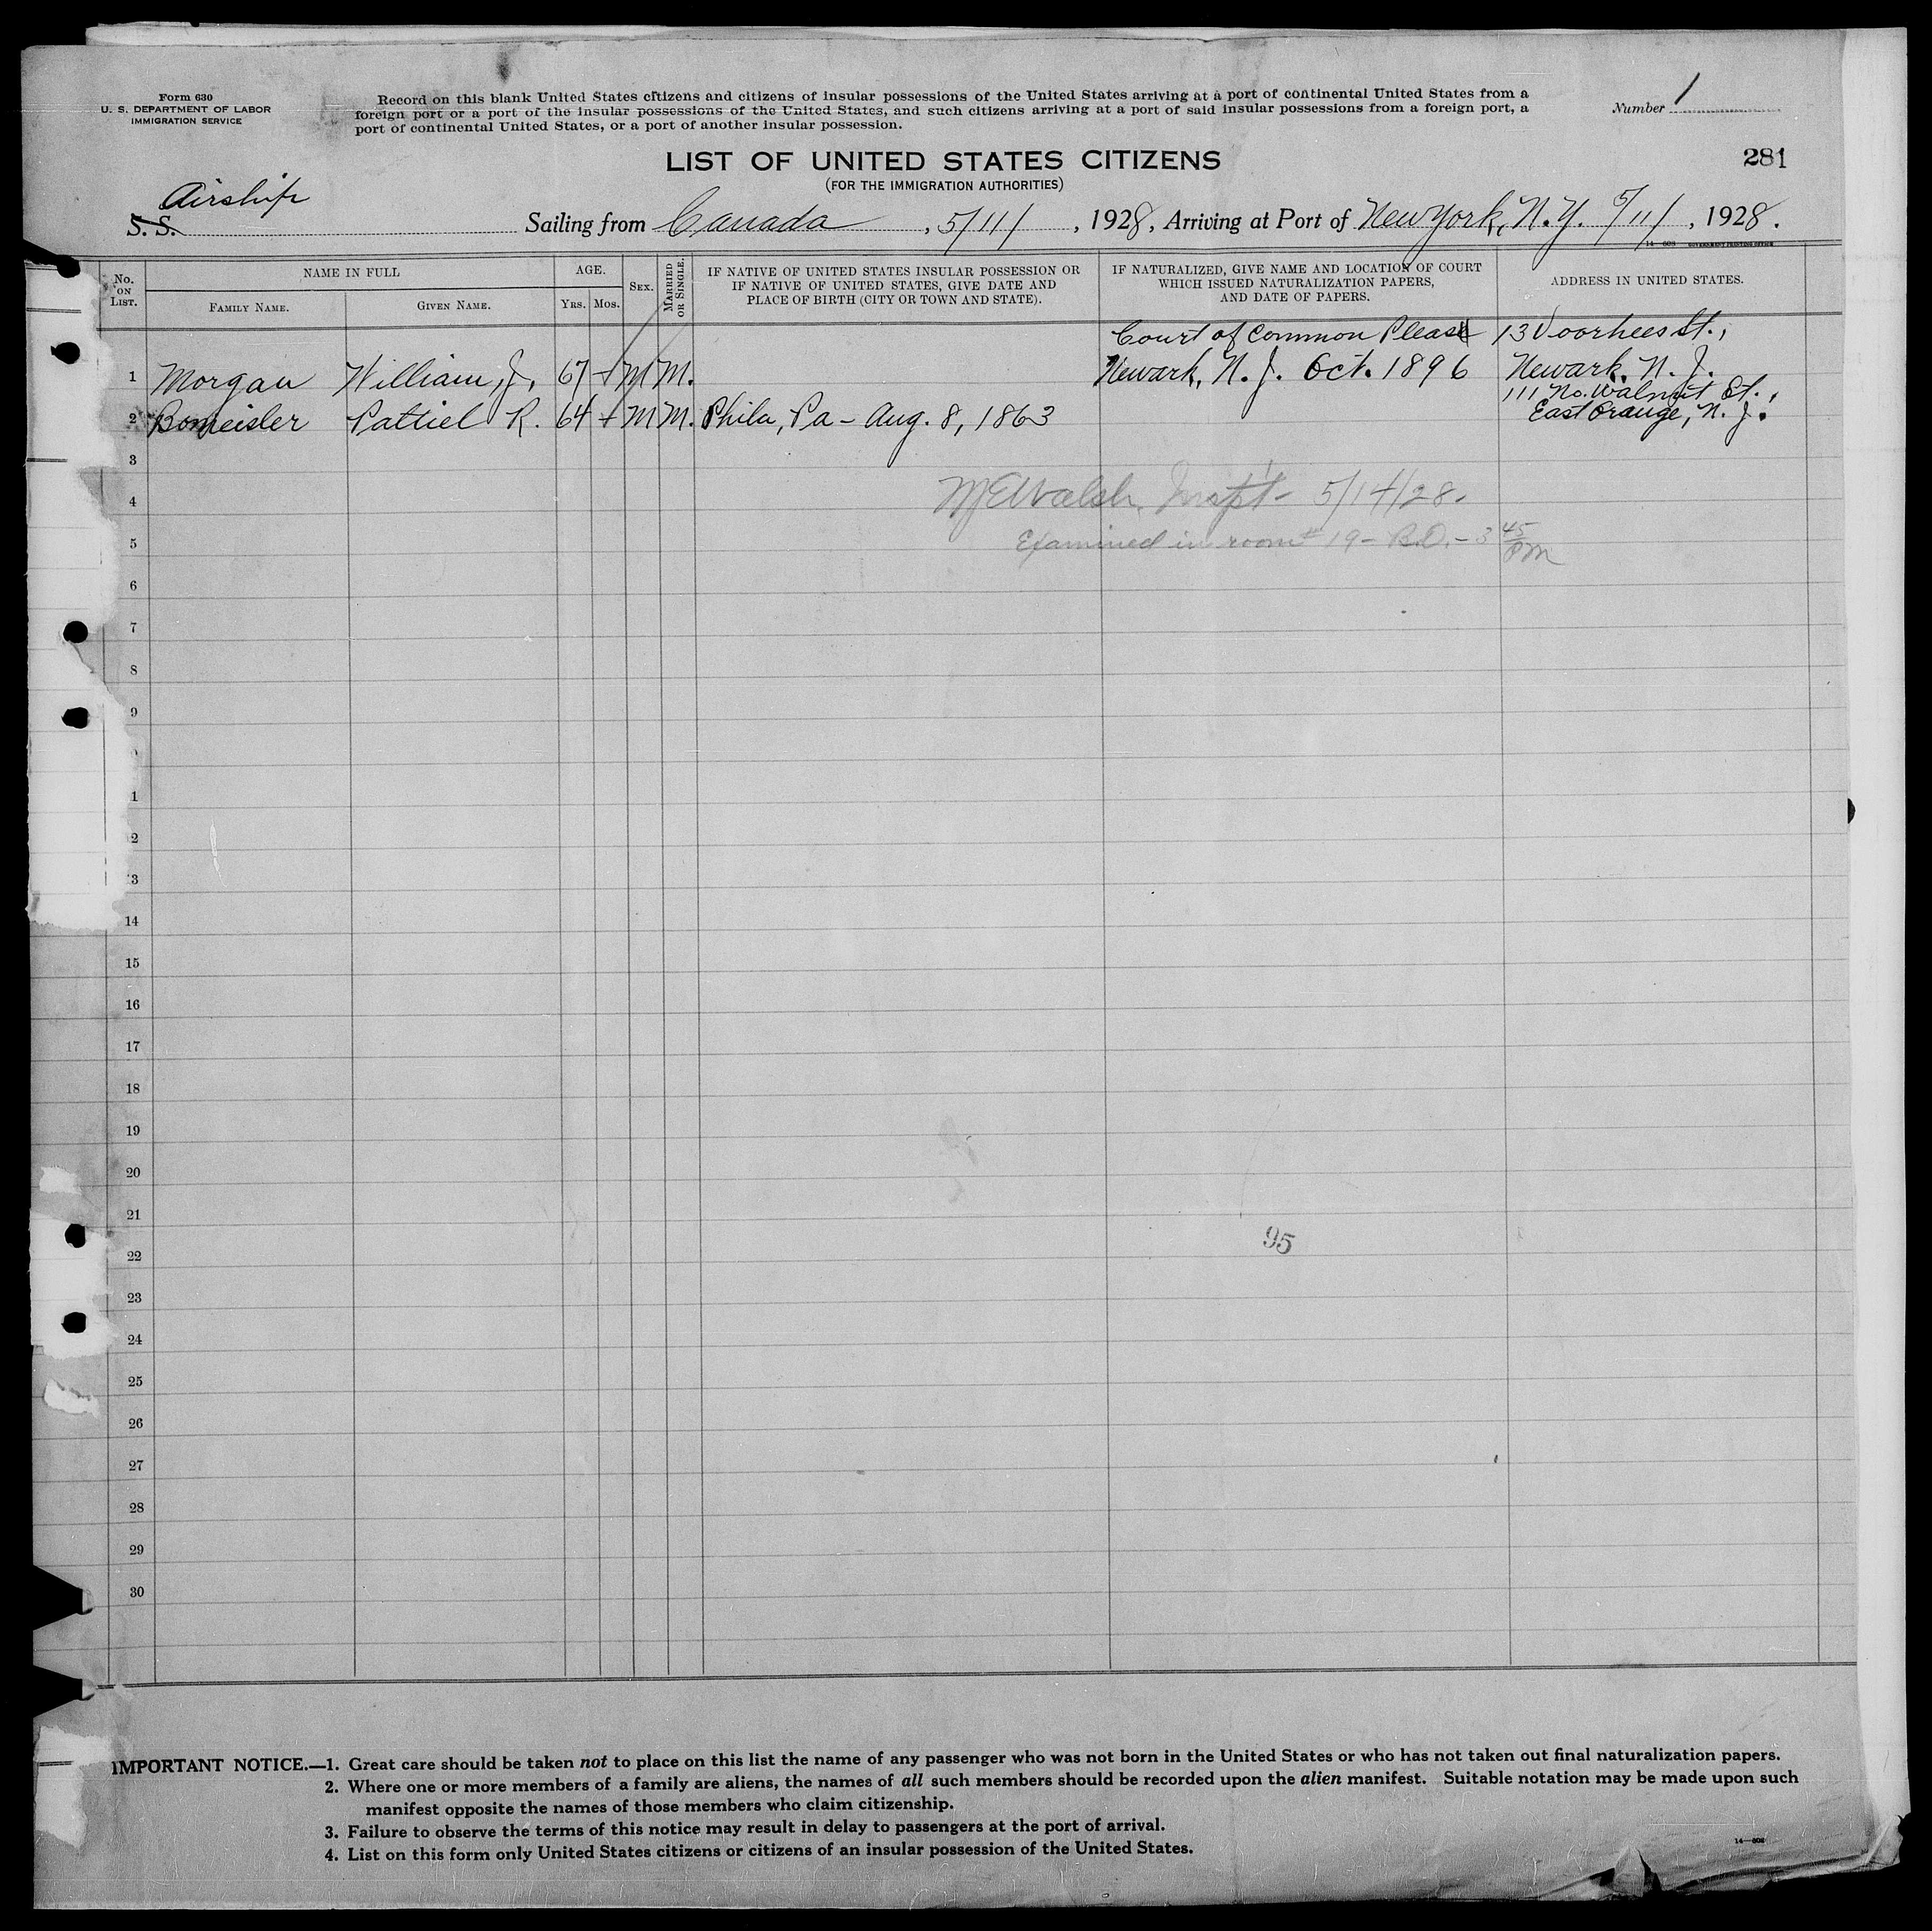 Form 630
U. S. DEPARTMENT OF LABOR
IMMIGRATION SERVICE
Record on this blank United States citizens and citizens of insular possessions of the United States arriving at a port of continental United States from a
foreign port or a port of the insular possessions of the United States, and such citizens arriving at a port of said insular possessions from a foreign port, a
port of continental United States, or a port of another insular possession.
Number 1
LIST OF UNITED STATES CITIZENS
281
(FOR THE IMMIGRATION AUTHORITIES)
Airship
S. S. Sailing from Canada, 5/11/, 1928, Arriving at Port of New York, N.Y. 5/11/, 1928.
14—608 GOVERNMENT PRINTING OFFICE
No. ON LIST.
NAME IN FULL
FAMILY NAME.
GIVEN NAME.
AGE.
YRS. MOS.
SEX.
MARRIED OR SINGLE.
IF NATIVE OF UNITED STATES INSULAR POSSESSION OR
IF NATIVE OF UNITED STATES, GIVE DATE AND
PLACE OF BIRTH (CITY OR TOWN AND STATE).
IF NATURALIZED, GIVE NAME AND LOCATION OF COURT
WHICH ISSUED NATURALIZATION PAPERS,
AND DATE OF PAPERS.
ADDRESS IN UNITED STATES.
Court of Common Pleas 13 Voorhees St.,
1 Morgan William, J. 67 + M M. Newark, N. J. Oct. 1896 Newark, N. J.
111 No. Walnut St.,
2 Bomeisler Pattiel R. 64 + M M. Phila, Pa - Aug. 8, 1863 East Orange, N. J.
3
4 M E Walsh, Insp't - 5/14/28.
5 Examined in room # 19 - B.O. - 3 45 PM
6
7
8
9
1
2
3
14
15
16
17
18
19
20
21
22 95
23
24
25
26
27
28
29
30
IMPORTANT NOTICE.—1. Great care should be taken not to place on this list the name of any passenger who was not born in the United States or who has not taken out final naturalization papers.
2. Where one or more members of a family are aliens, the names of all such members should be recorded upon the alien manifest. Suitable notation may be made upon such
manifest opposite the names of those members who claim citizenship.
3. Failure to observe the terms of this notice may result in delay to passengers at the port of arrival.
4. List on this form only United States citizens or citizens of an insular possession of the United States.
14—608